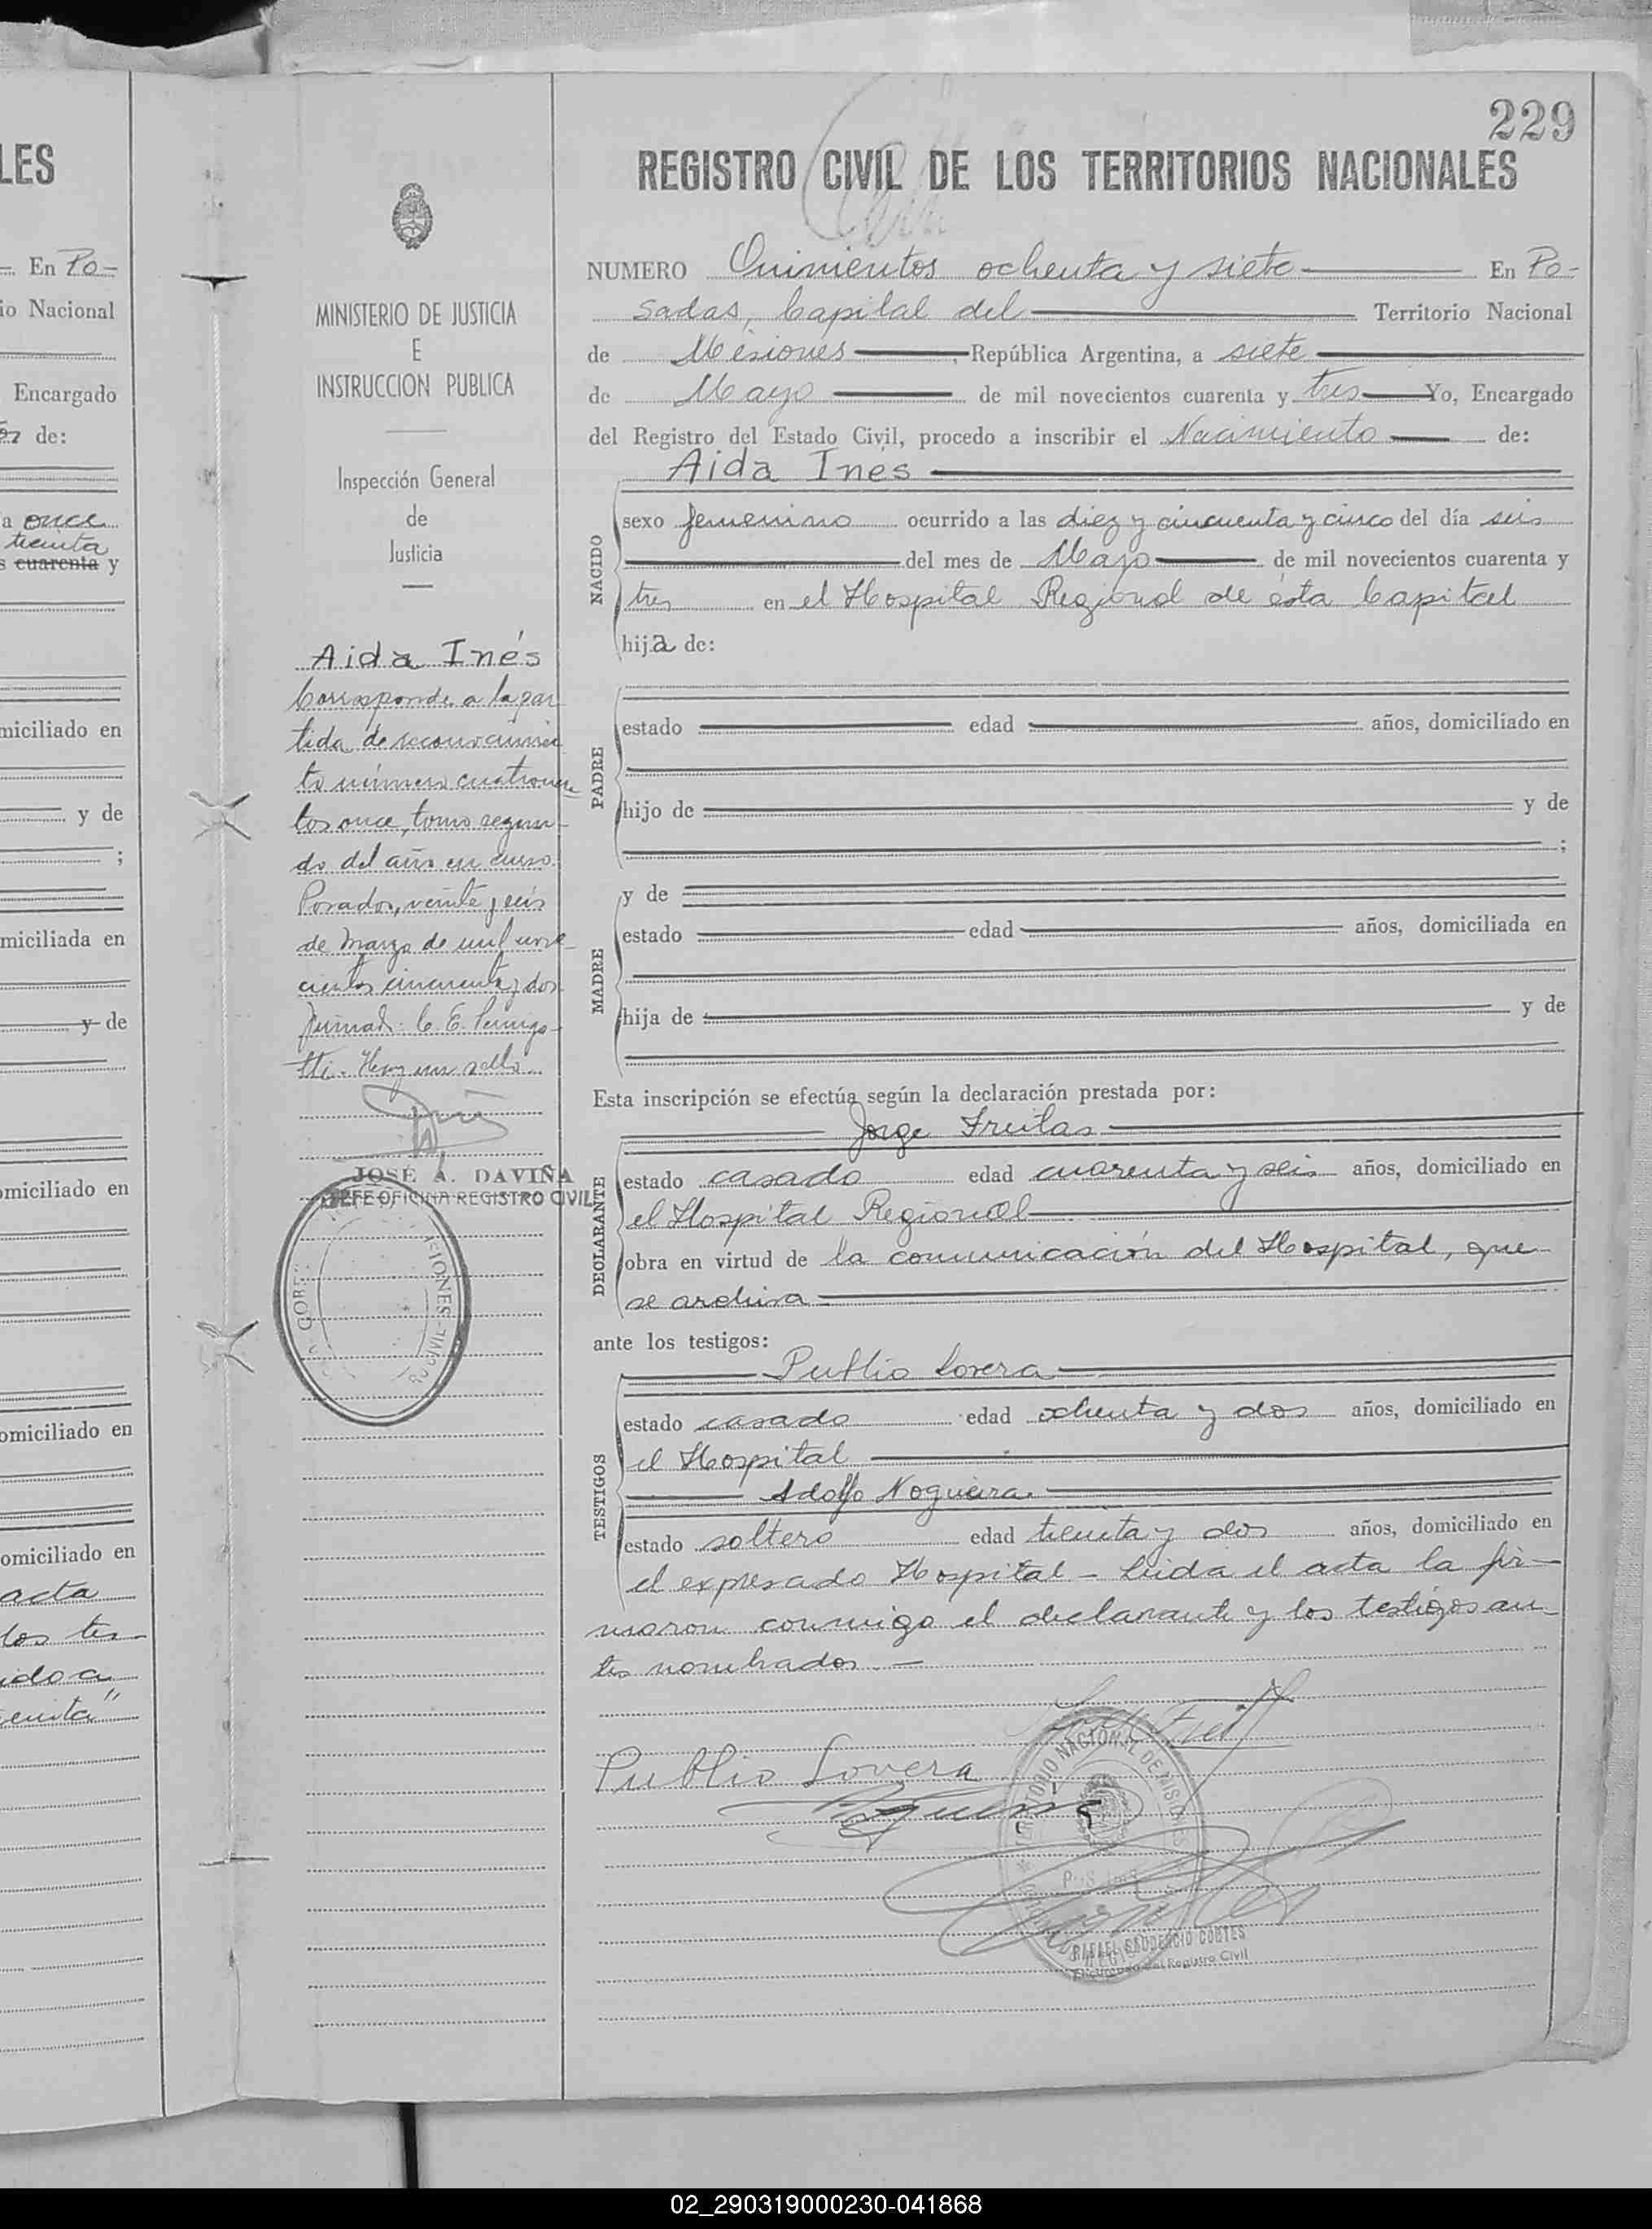 LES
En Po-
io Nacional
Encargado
de:
a once
treinta
s cuarenta y
miciliado en
y de
;
miciliada en
y de
omiciliado en
omiciliado en
omiciliado en
acta
los tes-
ido a
MINISTERIO DE JUSTICIA
E
INSTRUCCION PUBLICA
Inspección General
de
Justicia
Aida Inés
Corresponde a la par
tida de reconocimien
to número cuatrocien
tos once, tomo segun-
do del año en curso.
Posadas, veinte y seis
de Marzo de mil nove-
cientos cincuenta y dos
firmado: C. E.
Hay un sello.
JOSÉ A. DAVIÑA
JEFE OFICINA REGISTRO CIVIL
229
REGISTRO CIVIL DE LOS TERRITORIOS NACIONALES
NUMERO Quinientos ochenta y siete En Po-
sadas, Capital del Territorio Nacional
de Misiones, República Argentina, a siete
de Mayo de mil novecientos cuarenta y tres Yo, Encargado
del Registro del Estado Civil, procedo a inscribir el Nacimiento de:
Aida Ines
NACIDO
sexo femenino ocurrido a las diez y cincuenta y cinco del día seis
del mes de Mayo de mil novecientos cuarenta y
tres en el Hospital Regional de ésta Capital
hija de:
PADRE
estado edad años, domiciliado en
hijo de y de
;
MADRE
y de
estado edad años, domiciliada en
hija de y de
Esta inscripción se efectúa según la declaración prestada por:
DECLARANTE
Jorge Freitas
estado casado edad cuarenta y seis años, domiciliado en
el Hospital Regional
obra en virtud de la comunicación del Hospital, que
se archiva
ante los testigos:
TESTIGOS
Publio Lovera
estado casado edad ochenta y dos años, domiciliado en
el Hospital
Adolfo Nogueira
estado soltero edad treinta y dos años, domiciliado en
el expresado Hospital - Leida el acta la fir-
maron conmigo el declarante y los testigos an-
tes nombrados. -
Publio Lovera
TERRITORIO NACIONAL DE MISIONES
RAFAEL GAUDENCIO CORTES
Encargado del Registro Civil
02_290319000230-041868